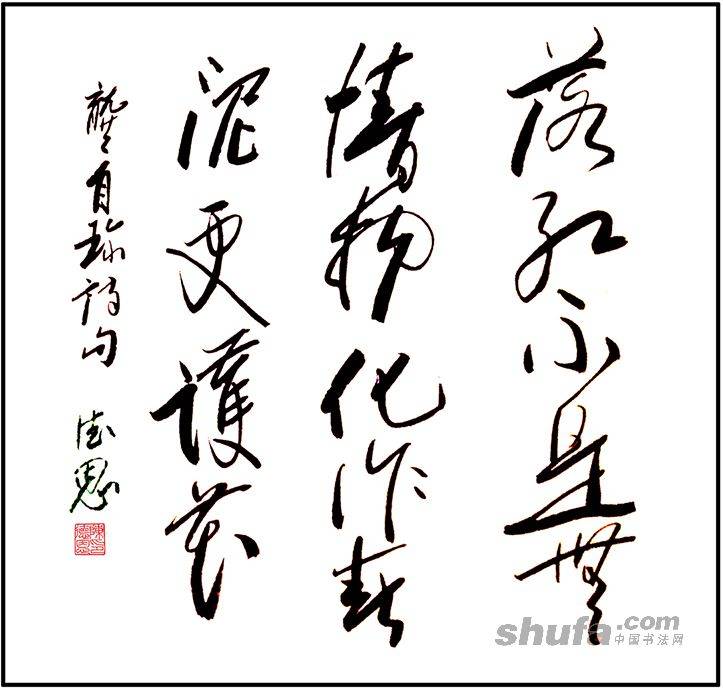 落红不是無
情物化作春
泥更護花
龔自珍詩句
shufa.com
中国书法网